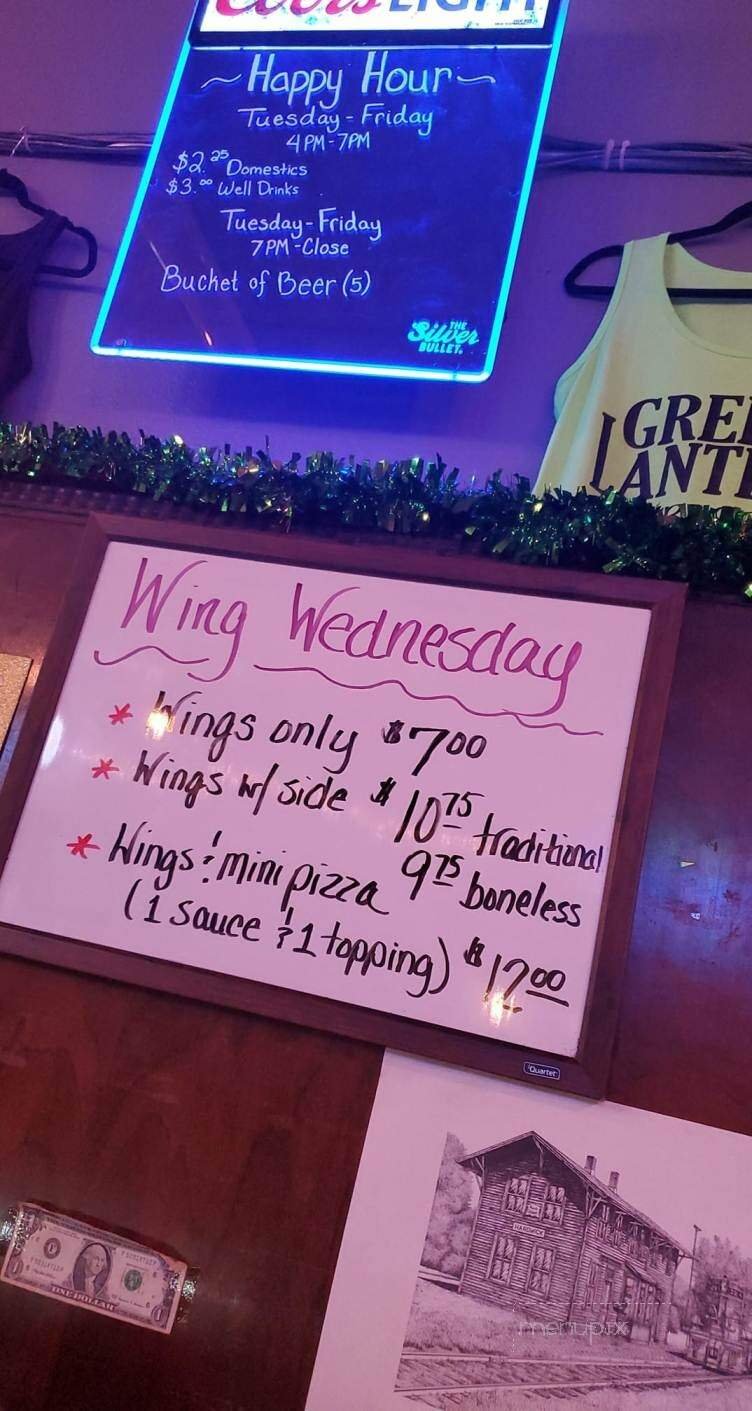 Coors LIGHT
Happy Hour
Tuesday-Friday
4PM-7PM
$2.25 Domestics
$3.00 Well Drinks
Tuesday-Friday
7PM-Close
Bucket of Beer (5)
THE
Silver
BULLET.
GREE
LANTE
Wing Wednesday
* Wings only $7.00
* Wings w/ side $10.75 traditional
9.75 boneless
* Wings & mini pizza
(1 sauce & 1 topping) $12.00
Quartet
ONE DOLLAR
menupix